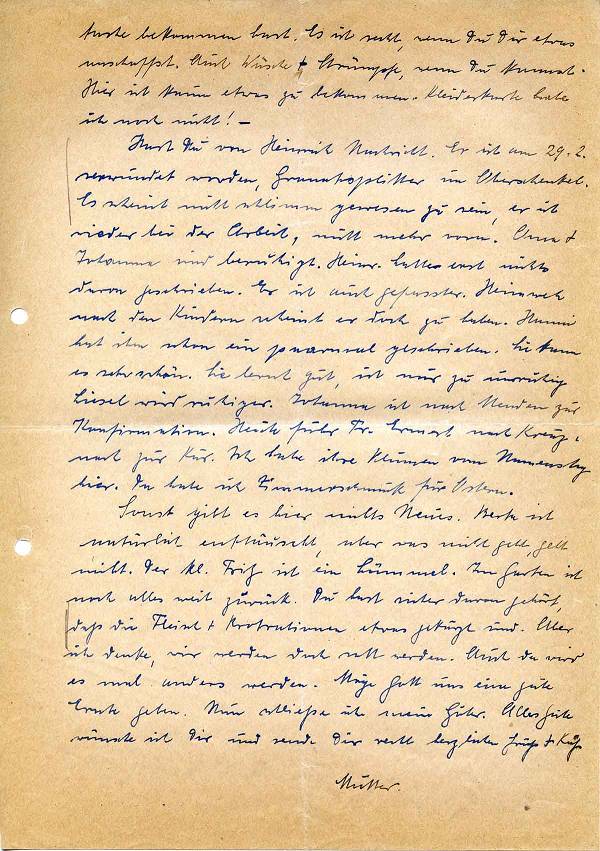 bekommen hast. Es ist recht, wenn Du Dir etwas
anschaffst. Auch Wäsche + Strümpfe, wenn Du kannst.
Hier ist kaum etwas zu bekommen. Kleiderkarte habe
ich noch nicht! –
Hast Du von Heinrich Nachricht. Er ist am 29.2.
verwundet worden, Granatsplitter im Oberschenkel.
Es scheint nicht schlimm gewesen zu sein, er ist
wieder bei der Arbeit, nicht mehr vorn. Oma +
Johanna sind beruhigt. Heinr. hatte erst nichts
davon geschrieben. Er ist auch gefasster. Heimweh
nach den Kindern scheint er doch zu haben. Hanni
hat ihm schon ein paarmal geschrieben. Sie kann
es sehr schön. Sie lernt gut, ist nur zu unruhig
Liesel wird ruhiger. Johanna ist nach Menden zur
Konfirmation. Heute fuhr Fr. nach Kreuz-
nach zur Kur. Ich habe ihre Blumen vom Namenstag
hier. Da habe ich Zimmerschmuck für Ostern.
Sonst gibt es hier nichts Neues. Berta ist
natürlich enttäuscht, aber was nicht geht, geht
nicht. Der kl. Fritz ist ein Lümmel. Im Garten ist
noch alles weit zurück. Du hast sicher davon gehört,
daß die Fleisch + Brotrationen etwas gekürzt sind. Aber
ich denke, wir werden doch satt werden. Auch da wird
es mal anders werden. Möge Gott uns eine gute
Ernte geben. Nun schließe ich mein Guter. Alles Gute
wünsche ich Dir und sende Dir recht herzlichen Gruß + Kuß
Mutter.